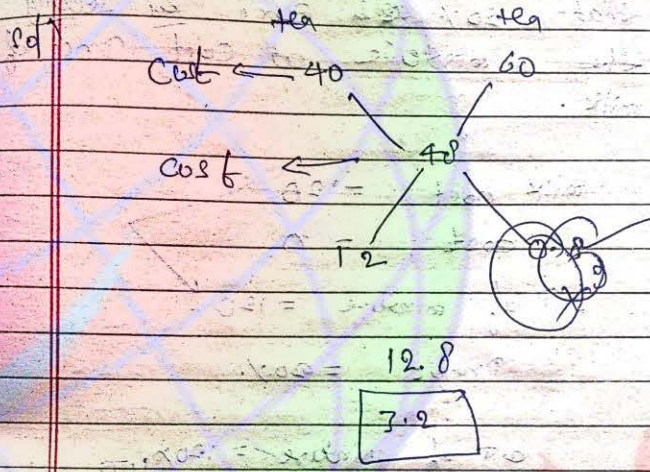 Sol
tea tea
Cost ← 40 60
Cost ← 48
12 8
12.8
3.2